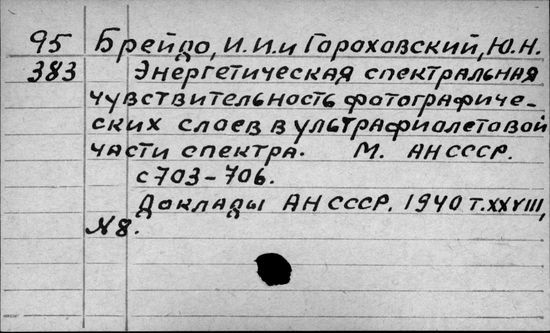 95 Брейдо, И. И. и Гороховский, Ю. Н.
383 Энергетическая спектральная
чувствительность фотографиче-
ских слоев в ультрафиолетовой
части спектра. М. АН СССР.
с 703-706.
Доклады АН СССР. 1940 Т. XXVIII,
№8.